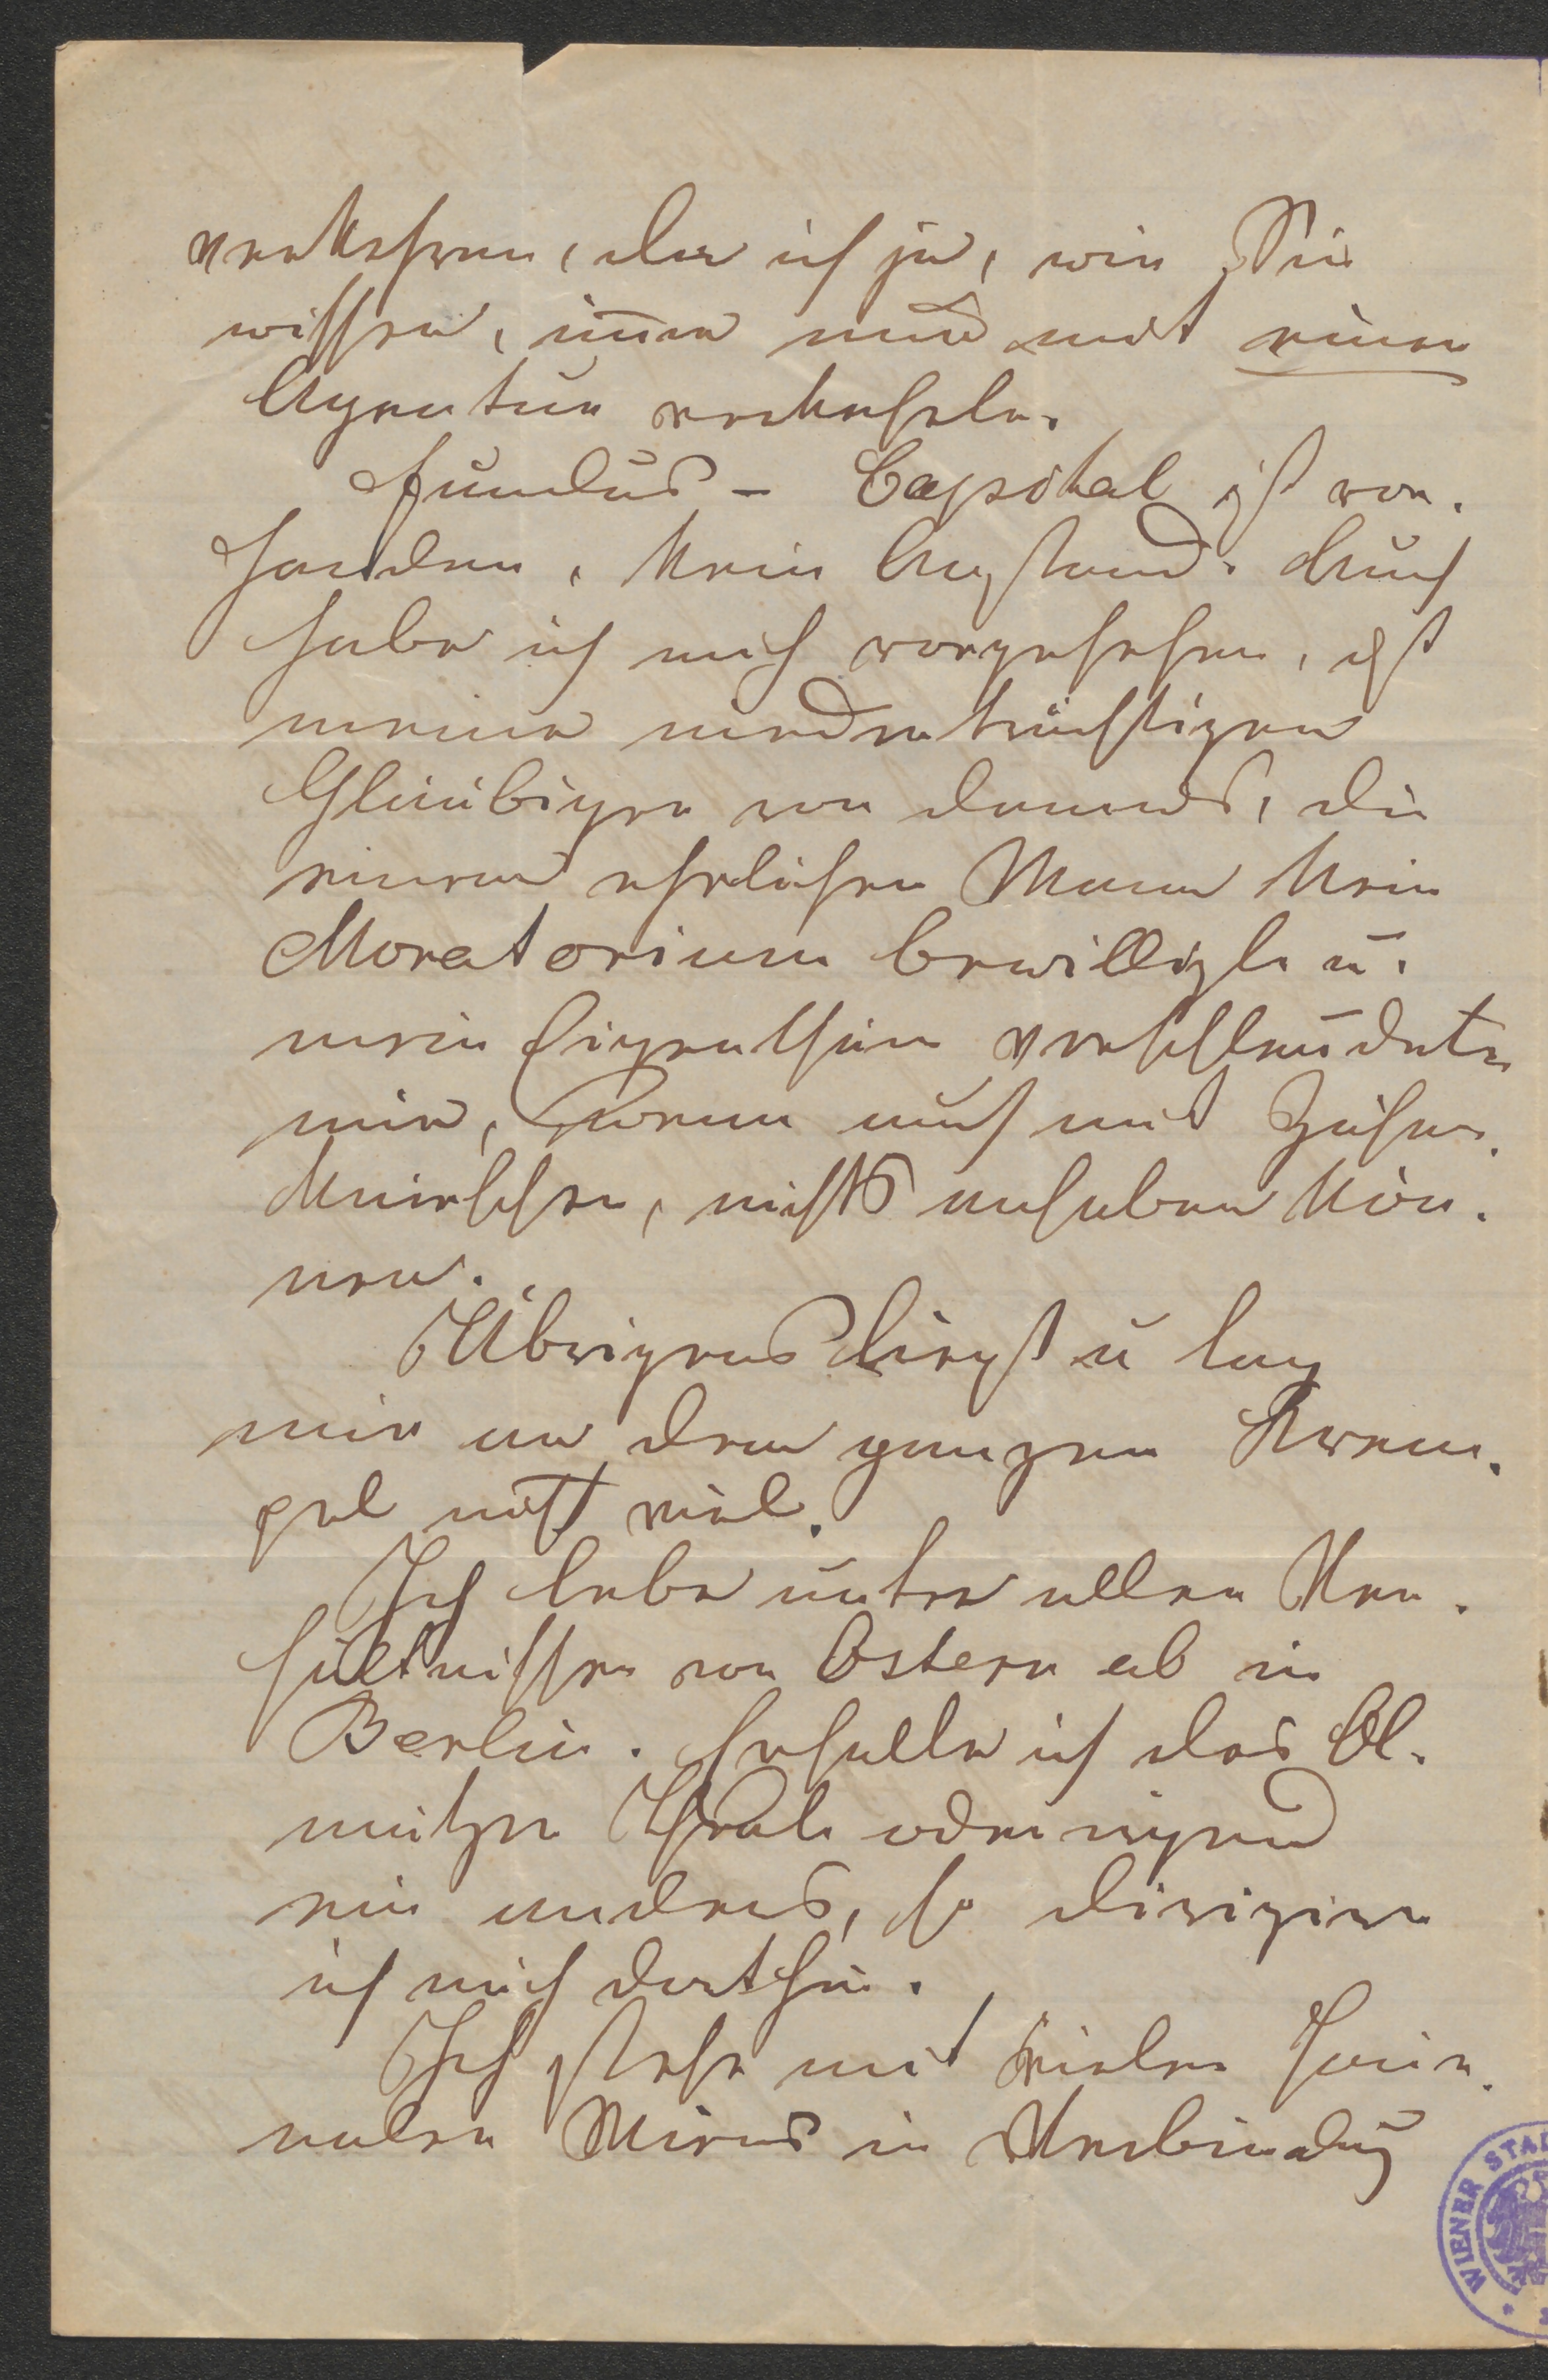 verkehren, da ich ja, wie Sie
wissen, immer nur mit einer
Agentur verkehrte.
Fundus-Capital ist vor-
handen, kein Anstand. Auch
habe ich mich vorgesehen, daß
meine niederträchtigen
Gläubiger von damals, die
einem ehrlichen Mann kein
Moratorium bewilligten u.
mein Eigenthum verschleuderten
mir, wenn auch mit Zähne-
knirschen, nichts anhaben kön-
nen.
Übrigens liegt u lag
mir an dem ganzen Krem-
pel nicht viel.
Ich lebe unter allen Ver-
hältnissen von Ostern ab in
Berlin. Erhalte ich das Ol-
mützer Theater oder irgend
ein anderes, so dirigire
ich mich dorthin.
Ich stehe mit vielen Jour-
nalen Wiens in Verbindung
WIENER STA